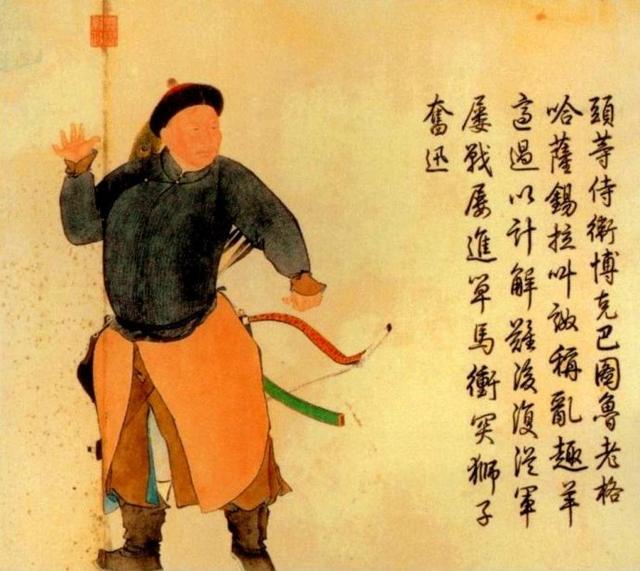 頭等侍衛博克巴圖魯老格
哈薩錫拉叫稱亂趣羊
適遇以計解難後復從軍
屢戰屢進單馬衝突獅子
奮迅